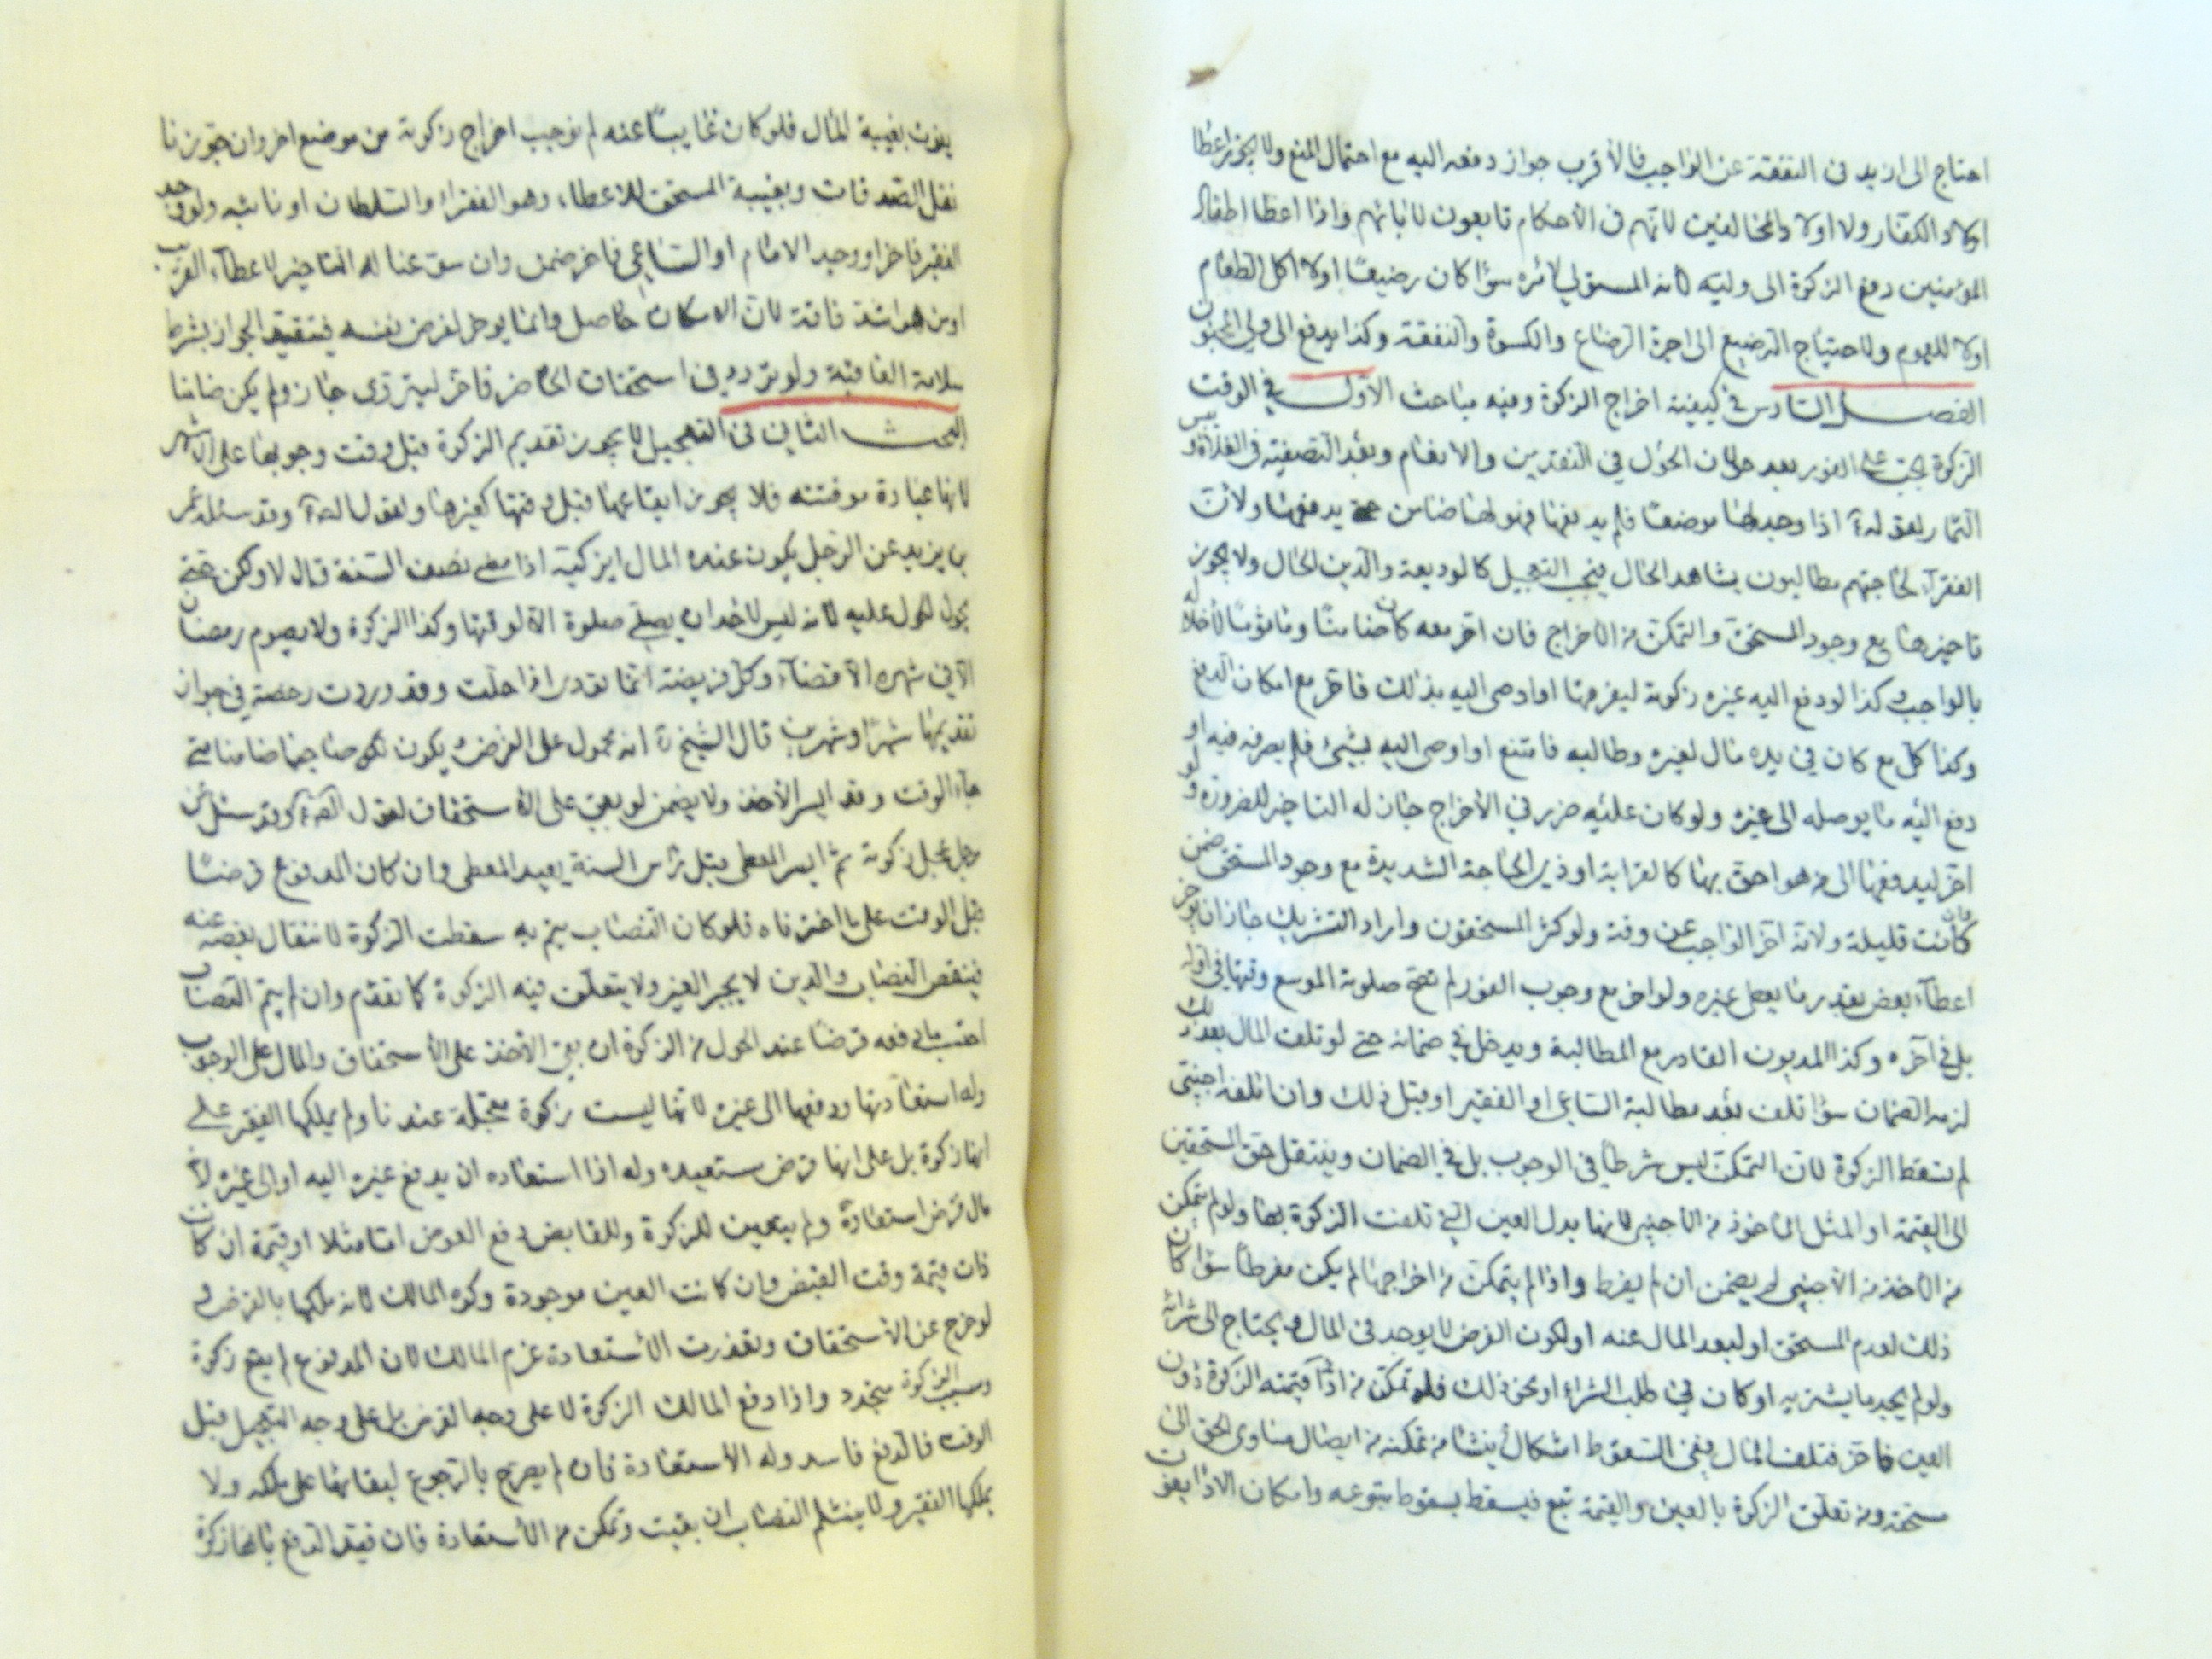 احتاج الى ازيد من النفقة عن الواجب فالأقرب جواز دفعه اليه مع احتمال المنع ولا يجوز اعطا
اولاد الكفار ولا اولاد المخالفين لانهم فى الأحكام تابعون لابائهم واذا اعطا اطفال
المؤمنين دفع الزكوة الى وليه لانه المستولي لامره سوٓا كان رضيعًا اولا اكل الطعام
اولا للعموم ولاحتياج الرضيع الى اجرة الرضاع والكسوة والنفقة وكذا يدفع الى ولي المجنون
الفصل السادس في كيفية اخراج الزكوة وفيه مباحث الأول في الوقت
الزكوة يجب على الفور بعد حولان الحول في النقدين والانعام وبعد التصفية فى الغلاة و
الثمار لقوله اذا وجد لها موضعًا فلم يدفعها فهو لها ضامن حتى يدفعها ولان
الفقرآء لحاجتهم مطالبون بشاهد الحال فيجب التعجيل كالوديعة والدين الحال ولا يجوز له
تاخيرها مع وجود المستحق والتمكن من الاخراج فان اخر معه كان ضامنًا وماثومًا لأخلاله
بالواجب وكذا لو دفع اليه غيره زكوته ليفرقها او اوصى اليه بذلك فاخر مع امكان الدفع
وكذا كل مع كان في يده مال لغيره وطالبه فامتنع او اوصى اليه بشيئ فلم يصرفه فيه او
دفع اليه ما يوصله الى غيره ولو كان عليه ضرر في الأخراج جاز له التاخير للضرورة ولو
اخر ليدفعها الى من هو احق بها كالقرابة او ذي الحاجة الشديدة مع وجود المستحق ضمن
وان كانت قليلة ولانه اخر الواجب عن وقته ولو كثر المستحقون واراد التشريك جاز ان يوخر
اعطآء بعض بقدر ما يعطى غيره ولو اخر مع وجوب الفور لم تصح صلوته الموسع وقتها في اوله
بل في آخره وكذا المديون القادر مع المطالبة ويدخل في ضمانه حتى لو تلف المال بعد ذلك
لزمه الضمان سوٓا تلف بعد مطالبة الساعي او الفقير او قبل ذلك وان اتلفه اجنبي
لم يسقط الزكوة لان التمكن ليس شرطًا في الوجوب بل في الضمان وينتقل حق المستحقين
الى القيمة او المثل الماخوذ من الاجنبي لانها بدل العين التي تلفت الزكوة بها ولو لم يتمكن
من الاخذ من الأجنبي لم يضمن ان لم يفرط واذا لم يتمكن من اخراجها لم يكن مفرطًا سوٓا كان
ذلك لعدم المستحق او لبعد المال عنه او لكون الفرض لا يوجد فى المال ويحتاج الى شرائه
ولو لم يجد ما يشتريه او كان في طلب الشراء او نحو ذلك فلو تمكن من ادآء قيمته الزكوة دون
العين فاخر فتلف المال ففى السقوط اشكال ينشا من تمكنه من ايصال مساوى الحق الى
مستحقه ومن تعلق الزكوة بالعين والقيمة تبع فيسقط بسقوط متبوعه وامكان الادٓا يفوت
يفوت بغيبة المال فلو كان غايبًا عنه لم نوجب اخراج زكوته من موضع اخر وان جوزنا
نقل الصدقات وبغيبة المستحق للاعطاء وهو الفقراء والسلطان او نائبه ولو وجد
الفقير فاخر او وجد الامام او الساعي فاخر ضمن وان سوغنا له التاخير لاعطآء القريب
او من هو اشد فاقة لان الامكان حاصل وانما يوخر لغرض نفسه فيتقيد الجواز بشرط
سلامة العاقبة ولو تردد فى استحقاق الحاضر فاخر ليتروى جاز ولم يكن ضامنا
البحث الثاني فى التعجيل لا يجوز تقديم الزكوة قبل وقت وجوبها على الاشهر
لانها عبادة موقتته فلا يجوز ايقاعها قبل وقتها كغيرها ولقول وقد سئله عمر
بن يزيد عن الرجل يكون عنده المال ايزكيه اذا مضى نصف السنة قال لا ولكن حتى
يحول الحول عليه لانه ليس لاحد ان يصلي صلوة الا لوقتها وكذا الزكوة ولا يصوم رمضان
الا في شهره الا قضآء وكل فريضة انما تودى اذا حلت وقد وردت رخصة في جواز
تقديمها شهرًا وشهرين قال الشيخ انه محمول على الفرض ويكون صاحبها ضامنا متى
جاء الوقت وقد ايسر الأخذ ولا يضمن لو بقي على الاستحقاق لقول وقد سئل عن
رجل عجل زكوته ثم ايسر المعطى قبل راس السنة يعيد المعطى وان كان المدفوع قرضًا
قبل الوقت على ما اخترناه فلو كان النصاب يتم به سقطت الزكوة لانتقال بعضه عنه
فينقص النصاب والدين لا يجبر العين ولا يتعلق فيه الزكوة كما تقدم وان لم يتم النصاب
احتسب ما دفعه قرضًا عند الحول من الزكوة ان بقي الأخذ على الأستحقاق والمال على الوجوب
وله استعادتها ودفعها الى غيره لانها ليست زكوة معجلة عندنا ولم يملكها الفقير على
انها زكوة بل على انها قرض ستعيده وله اذا استعاده ان يدفع غيره اليه او الى غيره لانه
مال قرض استعادة ولم يتعين للزكوة وللقابض دفع العوض امّا مثلا او قيمة ان كان
ذات قيمة وقت القبض وان كانت العين موجودة وكره المالك لانه ملكها بالقرض و
لو خرج عن الأستحقاق وتعذرت الأستعادة غرم المالك لان المدفوع لم يقع زكوة
وسبب الزكوة متجدد واذا دفع المالك الزكوة لا على وجه القرض بل على وجه التعجيل قبل
الوقت فالدفع فاسد وله الاستعادة فان لم يصرح بالرجوع لبقائها على ملكه ولا
يملكها الفقير ولا ينثلم النصاب ان بقيت وتمكن من الأستعادة فان قيد الدفع بانها زكوة